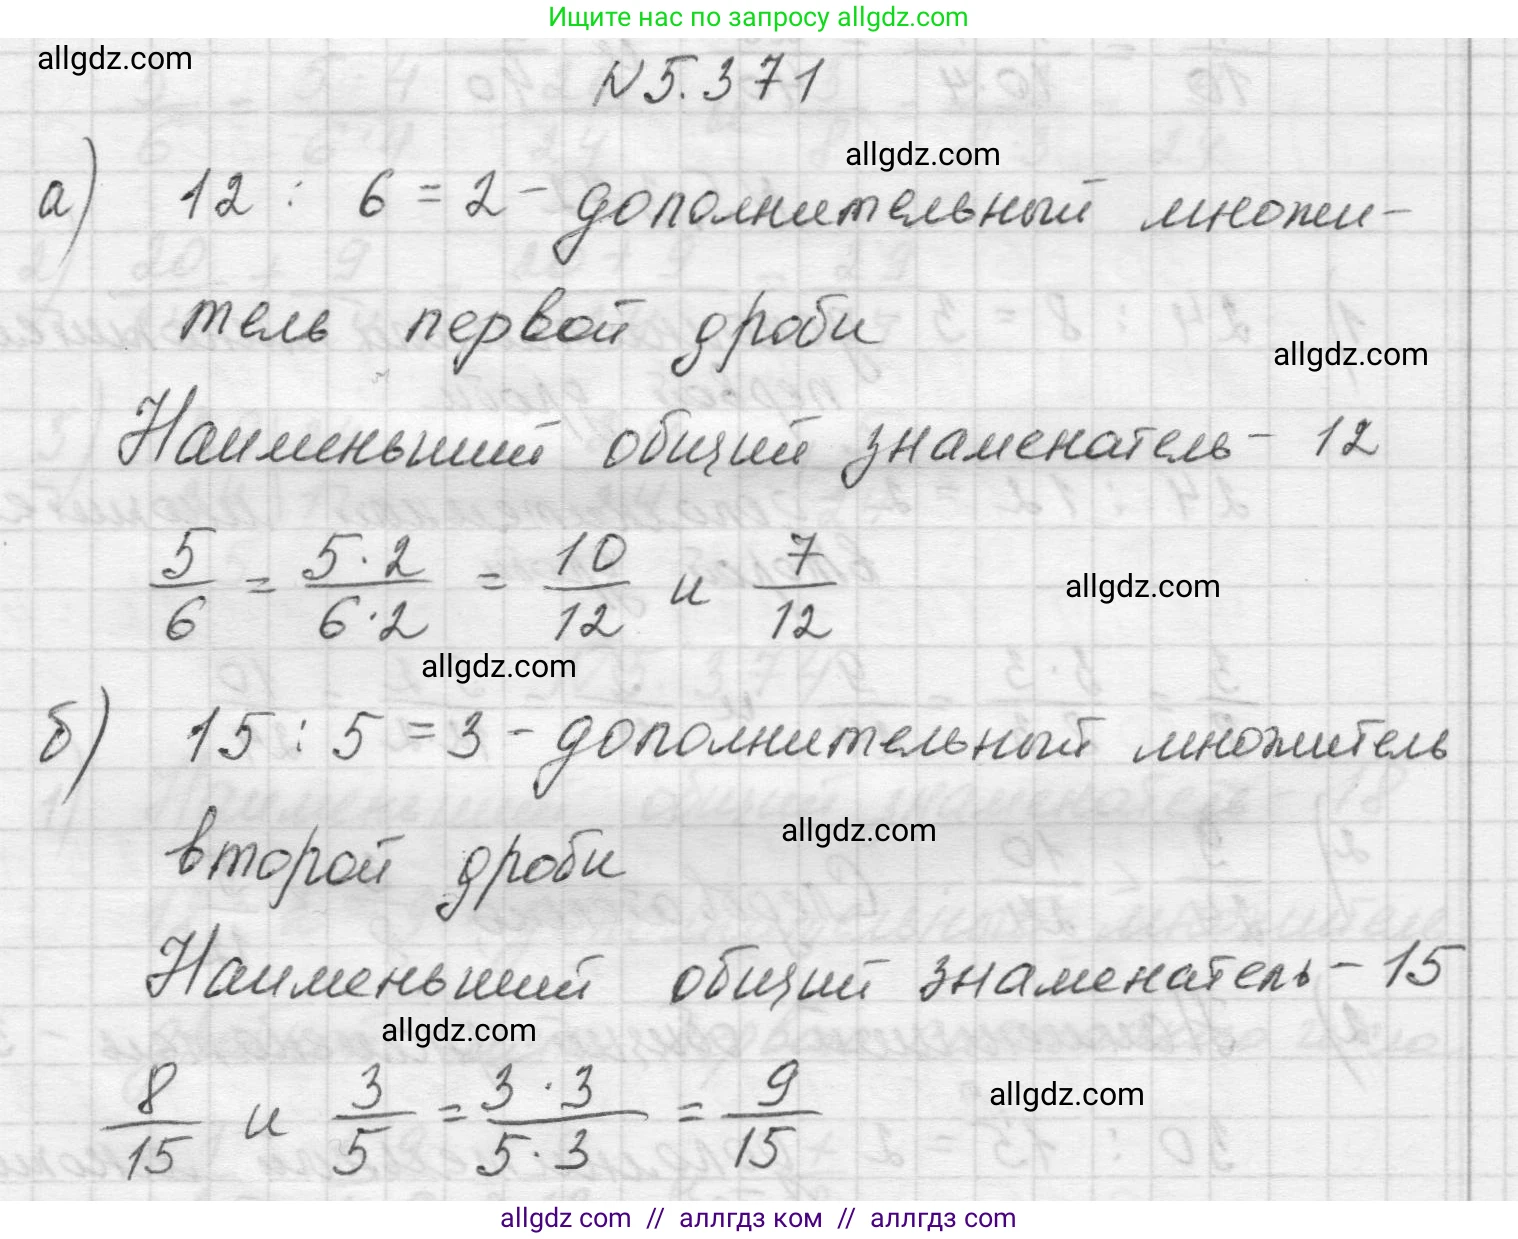 Ищите нас по запросу allgdz.com
allgdz.com
N 5.371
allgdz.com
а) 12 : 6 = 2 - дополнительный множи-
тель первой дроби
allgdz.com
Наименьший общий знаменатель - 12
5/6 = 5·2/6·2 = 10/12 и 7/12
allgdz.com
allgdz.com
б) 15 : 5 = 3 - дополнительный множитель
allgdz.com
второй дроби
Наименьший общий знаменатель - 15
allgdz.com
8/15 и 3/5 = 3·3/5·3 = 9/15
allgdz.com
allgdz com // аллгдз ком // аллгдз com